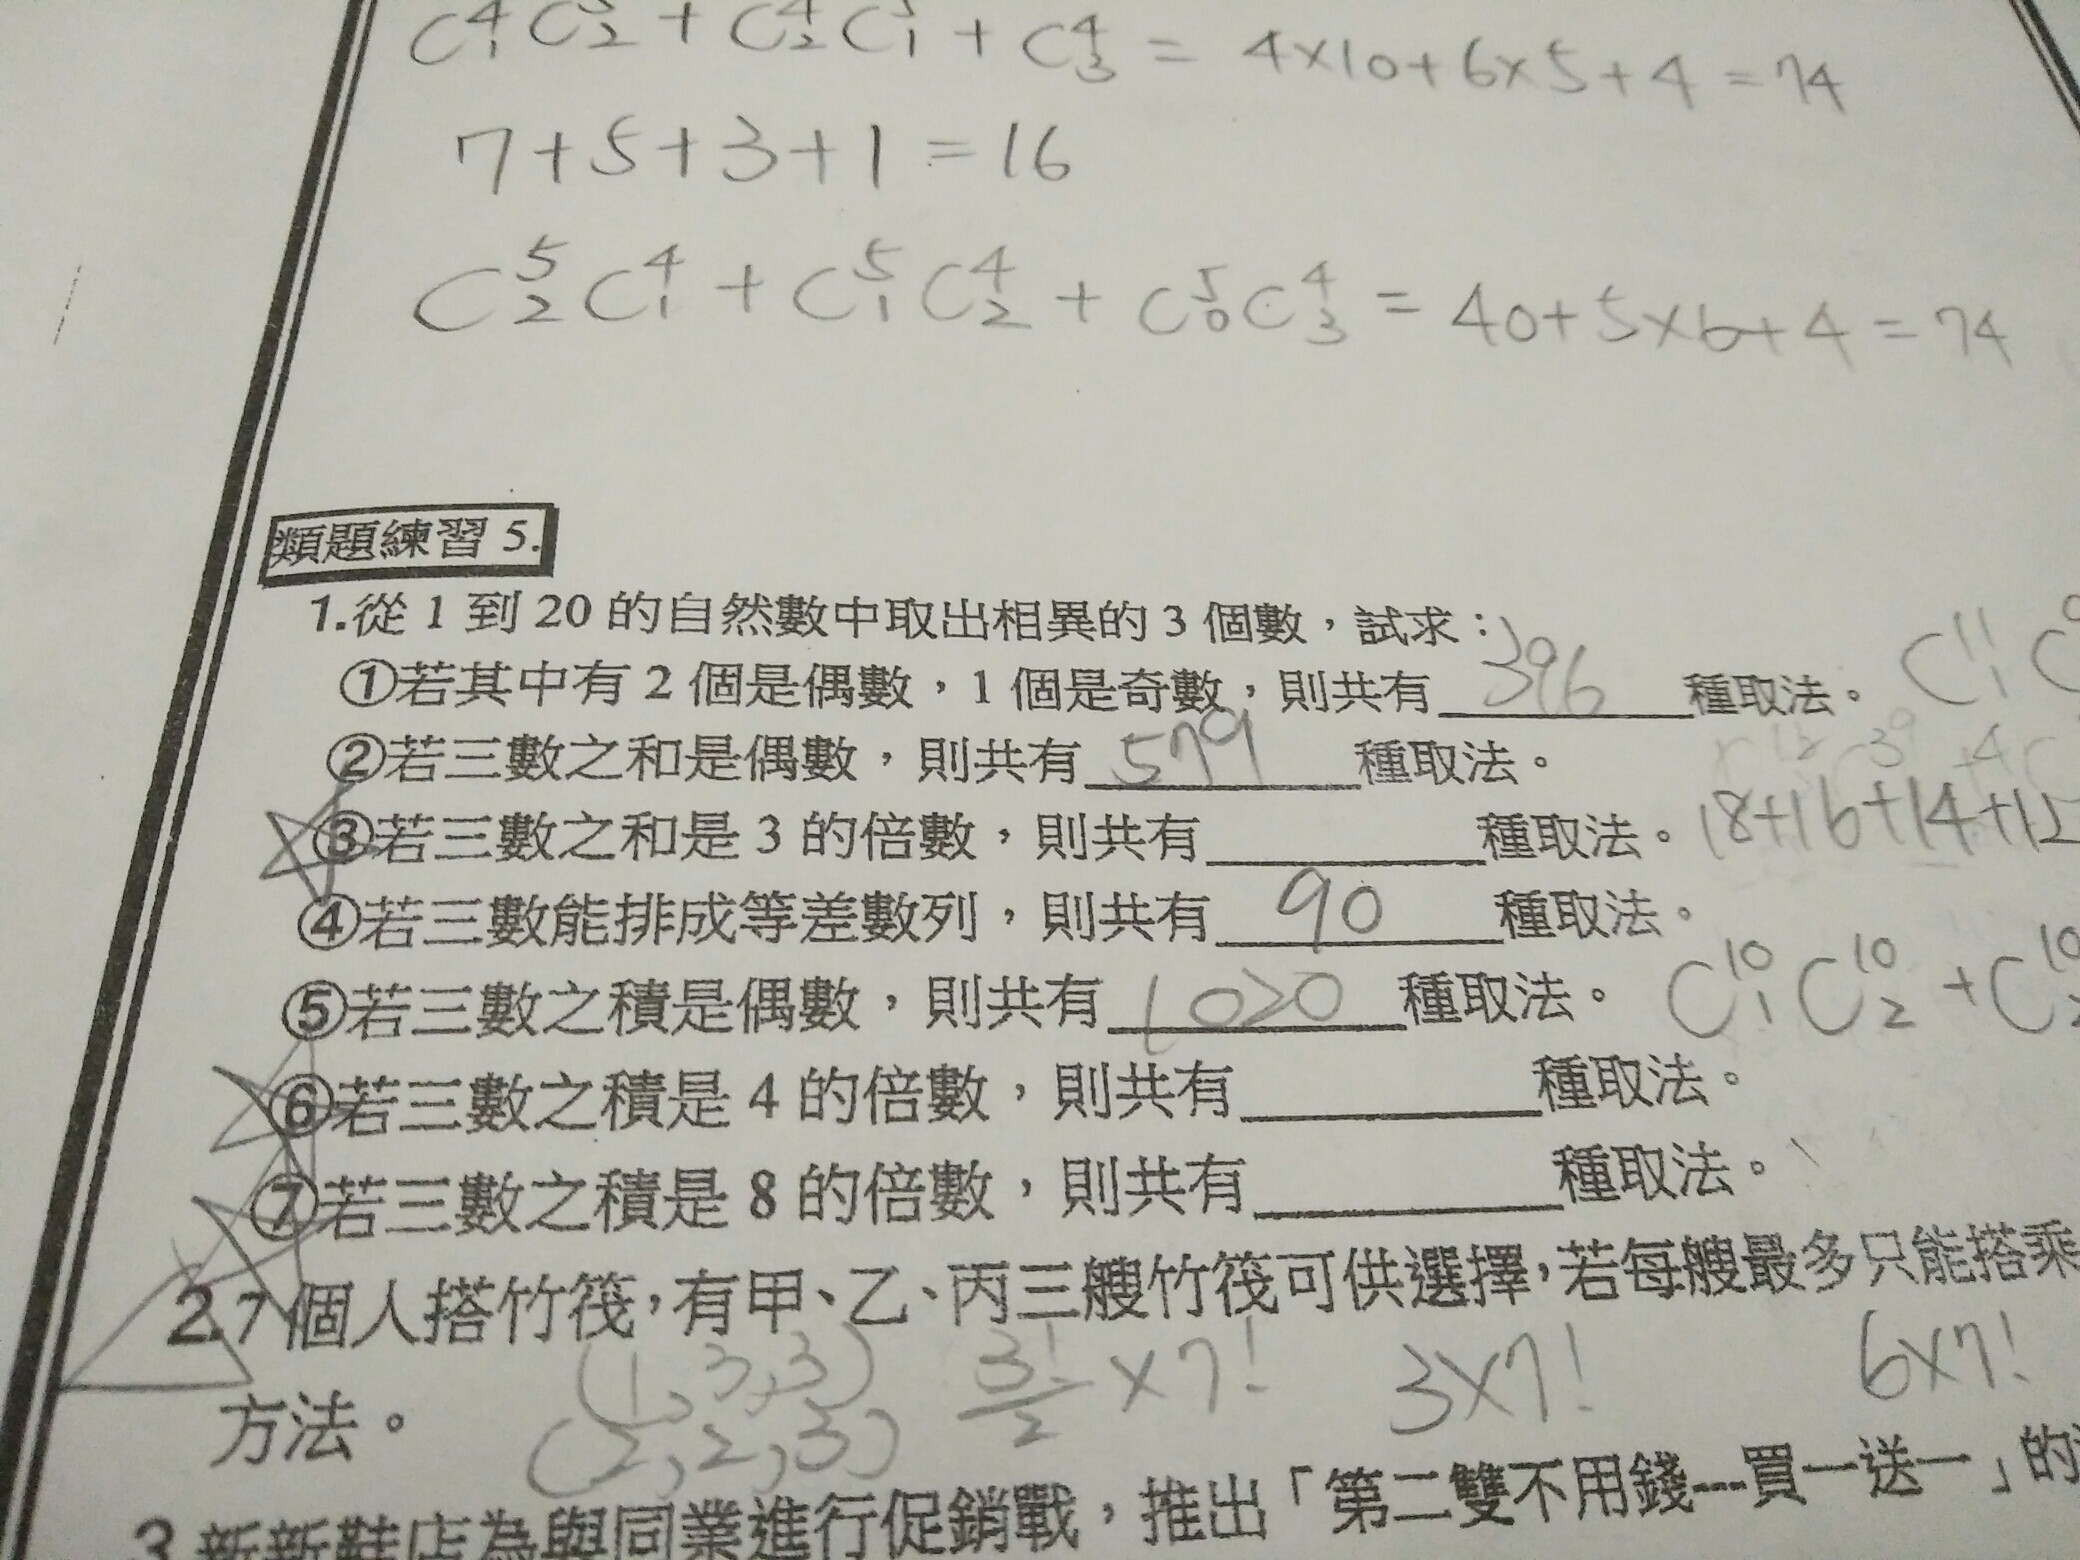 C⁴₁C⁵₂ + C⁴₂C⁵₁ + C⁴₃ = 4×10+6×5+4=74
7+5+3+1=16
C⁵₂C⁴₁ + C⁵₁C⁴₂ + C⁵₀C⁴₃ = 40+5×6+4=74
類題練習 5.
1.從 1 到 20 的自然數中取出相異的 3 個數，試求：
①若其中有 2 個是偶數，1 個是奇數，則共有 396 種取法。 C¹¹₁ C
②若三數之和是偶數，則共有 579 種取法。
③若三數之和是 3 的倍數，則共有______種取法。 18+16+14+12
④若三數能排成等差數列，則共有 90 種取法。
⑤若三數之積是偶數，則共有 1020 種取法。 C¹⁰₁C¹⁰₂+C¹⁰₂
⑥若三數之積是 4 的倍數，則共有______種取法。
⑦若三數之積是 8 的倍數，則共有______種取法。
2.7 個人搭竹筏，有甲、乙、丙三艘竹筏可供選擇，若每艘最多只能搭乘
(1,3,3) 3!/2 ×7! 3×7! 6×7!
方法。
(2,2,3)
3.新新鞋店為與同業進行促銷戰，推出「第二雙不用錢---買一送一」的